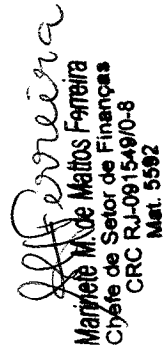 Ferreira
Mariniele M. de Mattos Ferreira
Chefe de Setor de Finanças
CRC RJ-091549/0-8
Mat. 5582